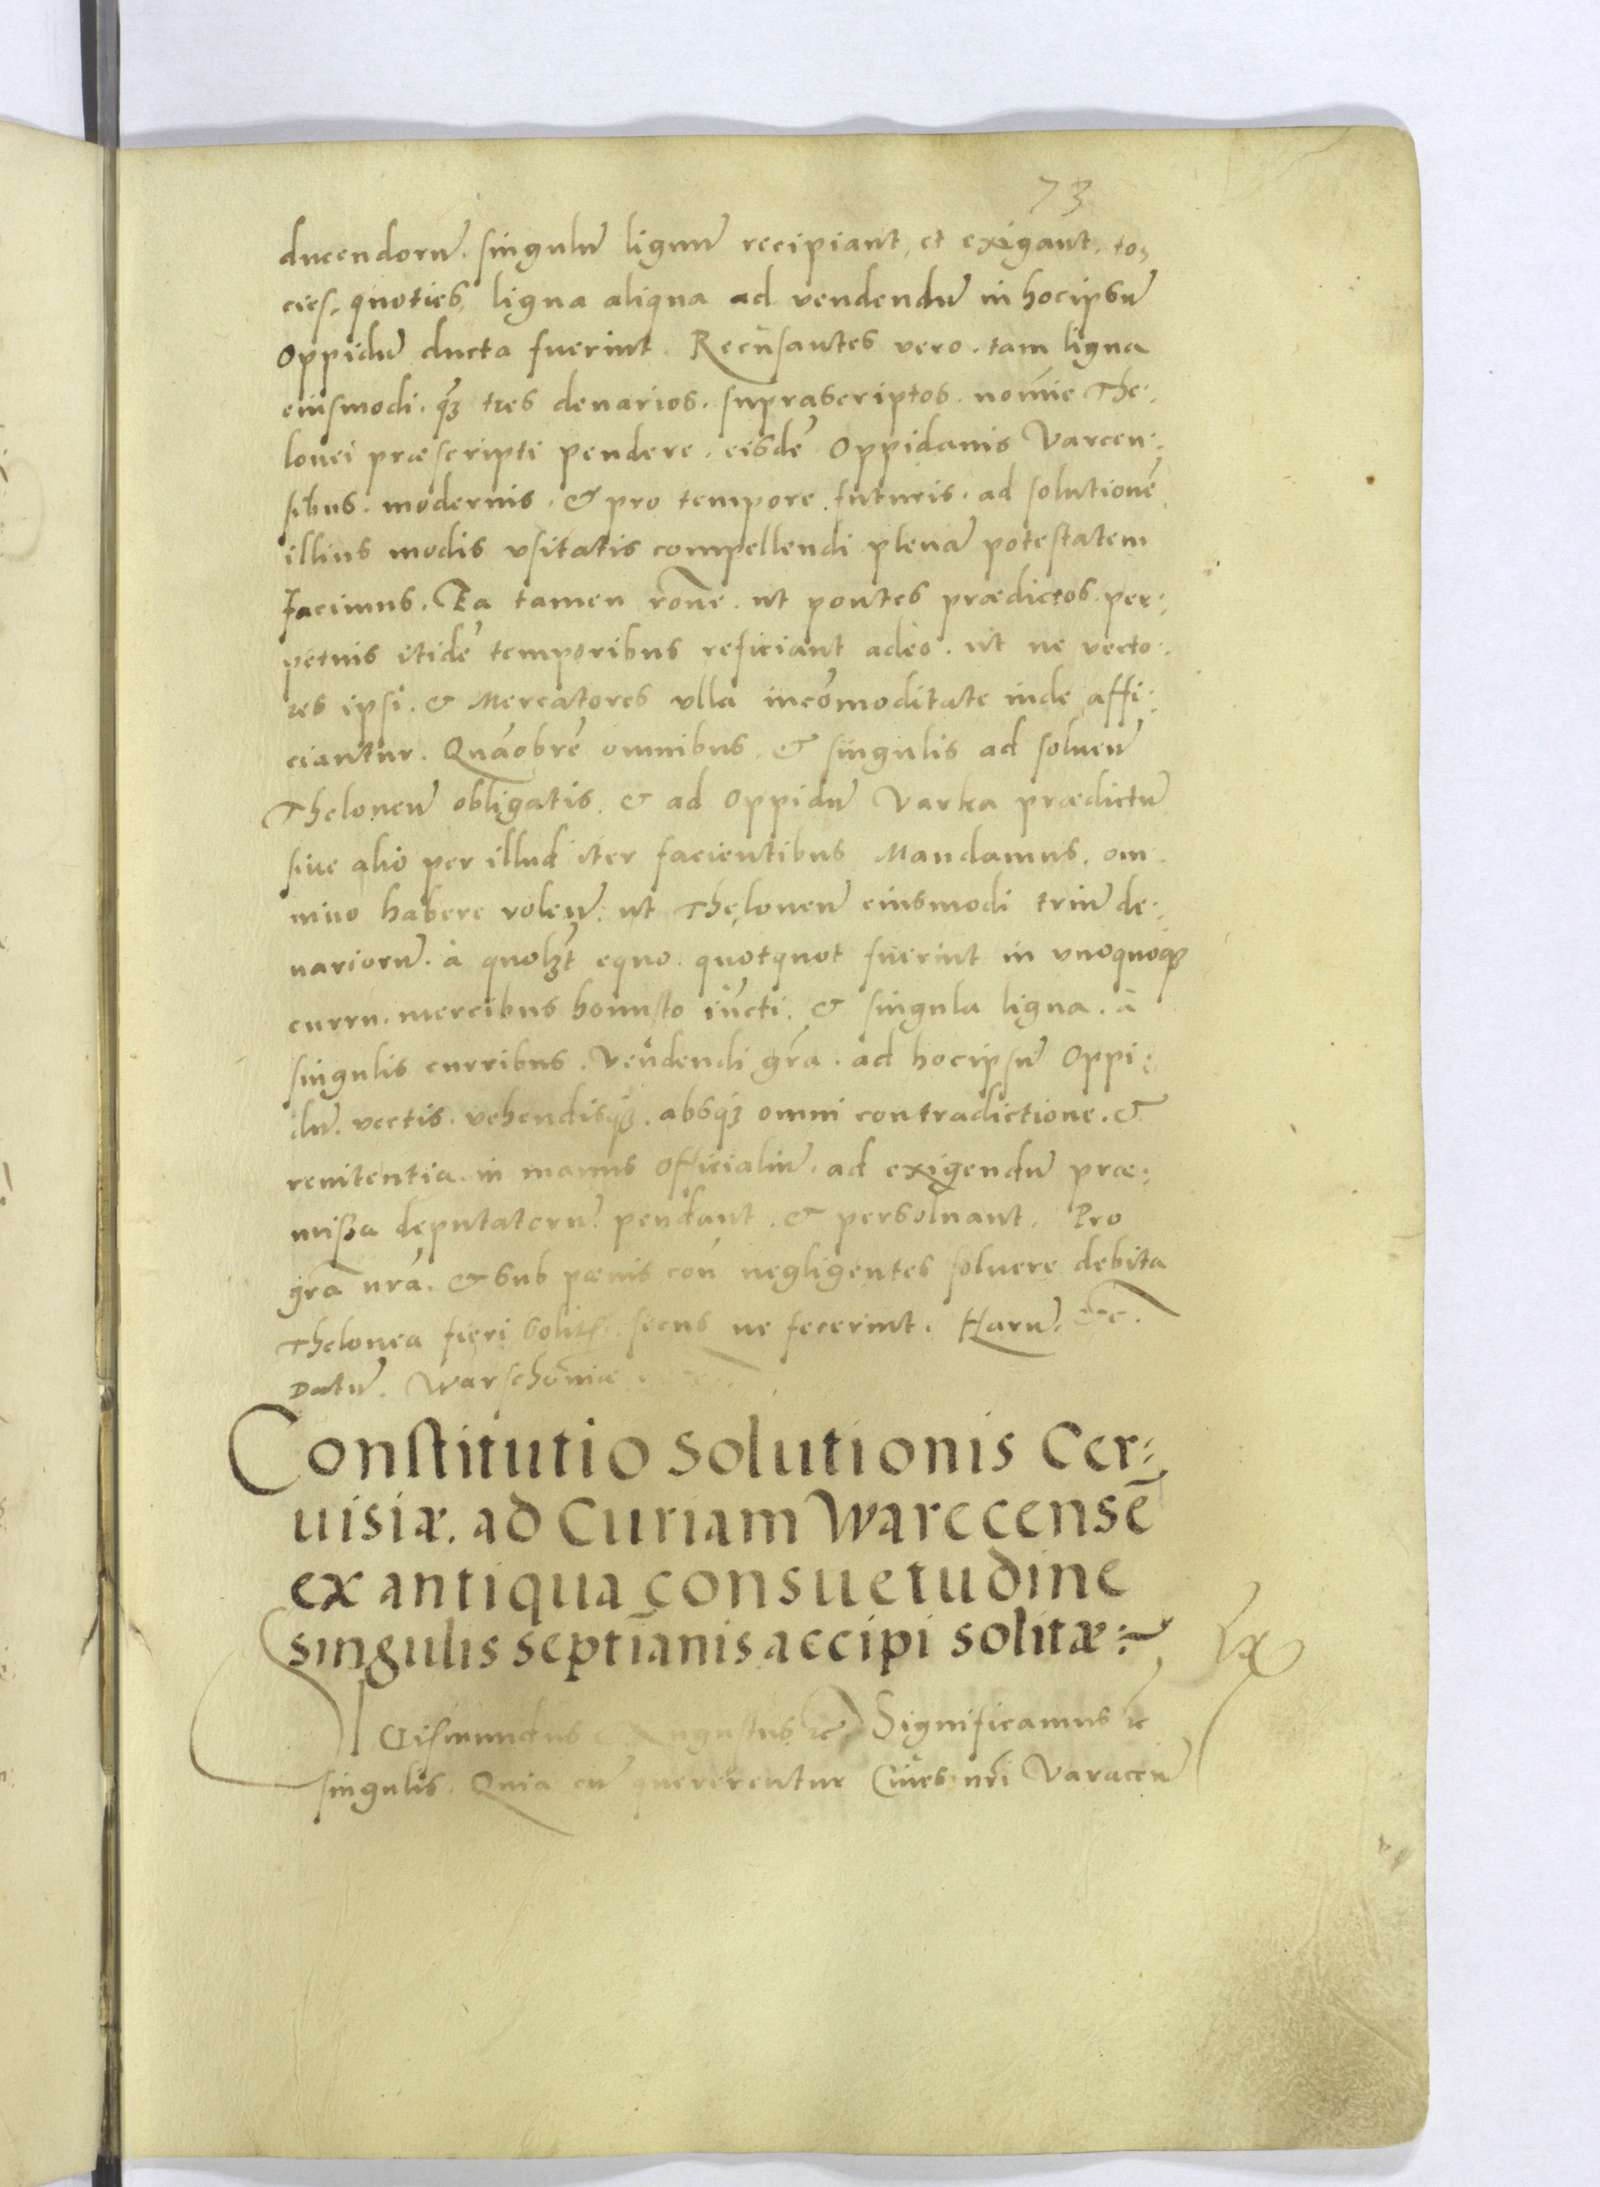 73
ducendorũ. singulũ lignũ recipiant, et exigant. to,
cies, quoties, ligna aliqua ad vendendũ in hocipsũ
Oppidũ ducta fuerint. Recusantes vero. tam ligna
eiusmodi. q̃ʒ tres denarios. suprascriptos. noı̃ie The:
lonei præscripti pendere. eisdẽ Oppidanis Varcen:
sibus. modernis. & pro tempore futuris. ad solutionẽ
illius modis vsitatis compellendi plenã potestatem
Facimus. Ea tamen rõne. ut pontes prædictos. per:
petuis itidẽ temporibus reficiant adeo. ut ne vecto:
res ipsi. & Mercatores vlla incõmoditate inde affi:
ciantur. Quãobrẽ omnibus. & singulis ad soluen̄
Theloneũ obligatis. & ad Oppidũ Varka prædictũ
siue aliò per illud iter facientibus Mandamus. om:
nino habere volen̄. ut Theloneũ eiusmodi triũ de:
nariorũ. à quolʒt equo. quotquot fuerint in vnoquoqȝ
curru. mercibus honusto iũcti. & singula ligna. à
singulis curribus. vendendi grã. ad hocipsũ Oppi:
dũ. vectis. vehendisqȝ. absqȝ omni contradictione. &
renitentia. in manus Officialiũ. ad exigendũ præ:
missa deputatorũ. pendant. & persoluant. Pro
grã nrã. & sub pœnis con̄ negligentes soluere debita
Thelonea fieri solitis. secus ne fecerint. Harũ. &c.
Datũ. Warschoviæ
Constitutio Solutionis Cer:
uisiæ. ad Curiam Warccensẽ
ex antiqua consuetudine
singulis septĩanis accipi solitæ:~
Sigismundus Augustus &c. Significamus &c
singulis. Quia cũ quererentur Ciues nr̃i Varacen̄